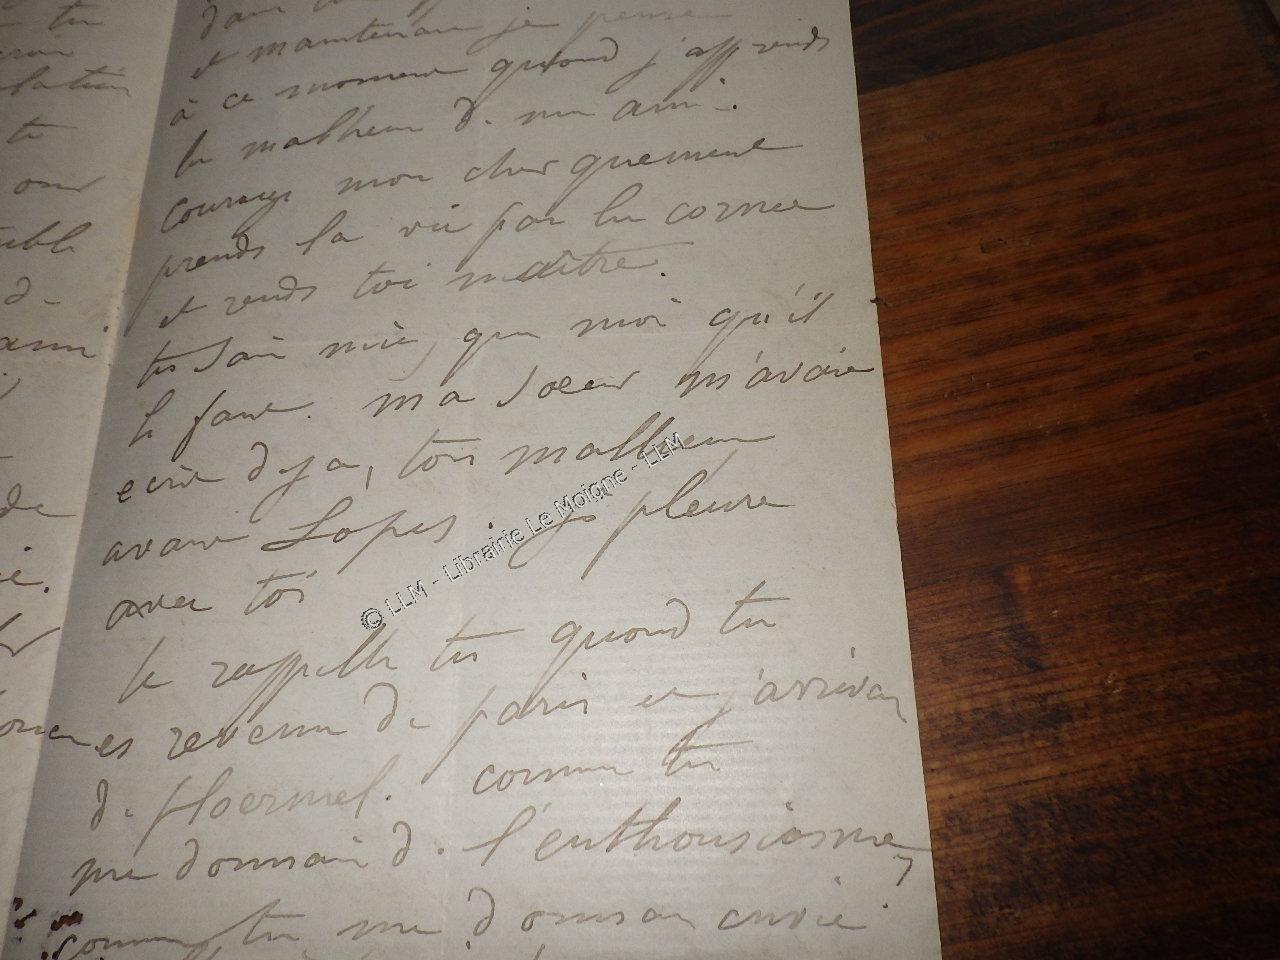 tu
lation
te
ami
de
et maintenant je pense
à ce moment quand j'apprends
le malheur de mon ami.
courage mon cher quemene
prends la vie par les cornes
et rends toi maître.
tu sais mieu que moi qu'il
le faut. ma soeur m'avait
ecrit deja, ton malheur
avant Lopes. Je pleure
avec toi
te rappelle tu quand tu
es revenu de paris et j'arrivai
de ploermel. comme tu
me donnais de l'enthousiasme,
comme tu me donnais envie
© LLM - Librairie Le Moigne - LLM